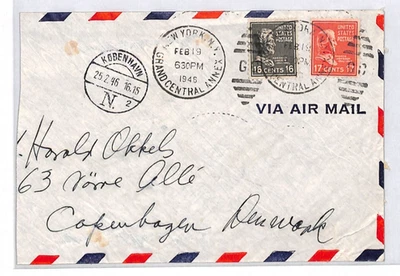 KØBENHAVN
25.2.46 16.15
N. 2
NEW YORK, N.Y.
FEB 19
630PM
1946
GRAND CENTRAL ANNEX
UNITED STATES POSTAGE
16 CENTS 16
UNITED STATES POSTAGE
17 CENTS 17
VIA AIR MAIL
Harold Okkels
63 Nörre Allé
Copenhagen Denmark